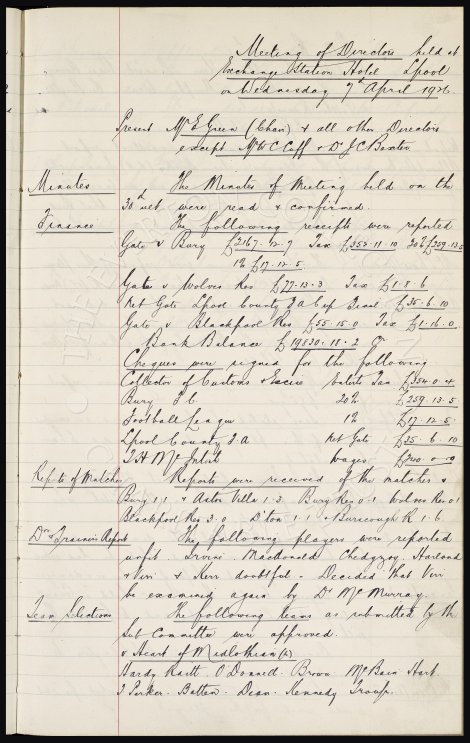 Meeting of Directors held at
Exchange Station Hotel Lpool
on Wednesday 7th April 1926
Present Mr E Green (Chair) & all other Directors
except Mr W C Cuff & Dr J C Baxter
Minutes The Minutes of Meeting held on the
30th ult were read & confirmed.
Finance The following receipts were reported
Gate v Bury £2167.12.9 Tax £353.11.10 20% £259.13.5
1% £17.12.5.
Gate v Wolves Res £77.13.3 Tax £1.8.6
Net Gate Lpool County F A Cup Final £35.6.10
Gate v Blackpool Res £55.15.0 Tax £1.16.0
Bank Balance £19830.18.2
Cheques were signed for the following
Collector of Customs & Excise Entots Tax £354.0.4
Bury F C 20% £259.13.5
Football League 1% £17.12.5
Lpool County F A Net Gate £35.6.10
T H McIntosh Wages £340.0.0
Reports of Matches Reports were received of the matches v
Bury 1.1 & Aston Villa 1.3. Bury Res 0.1 Wolves Res 0.1
Blackpool Res 3.0 D'ton 1.1 & Burscough R 1.6.
Drs & Trainers Report The following players were reported
unfit Irvine. Macdonald Chedgzoy Harland
& Virr & Kerr doubtful - Decided that Virr
be examined again by Dr McMurray.
Team Selections The following teams as submitted by the
Sub Committee were approved.
v Heart of Midlothian (h)
Hardy Raitt. O'Donnell. Brown McBain Hart.
J Parker. Batten. Dean. Kennedy Troup.